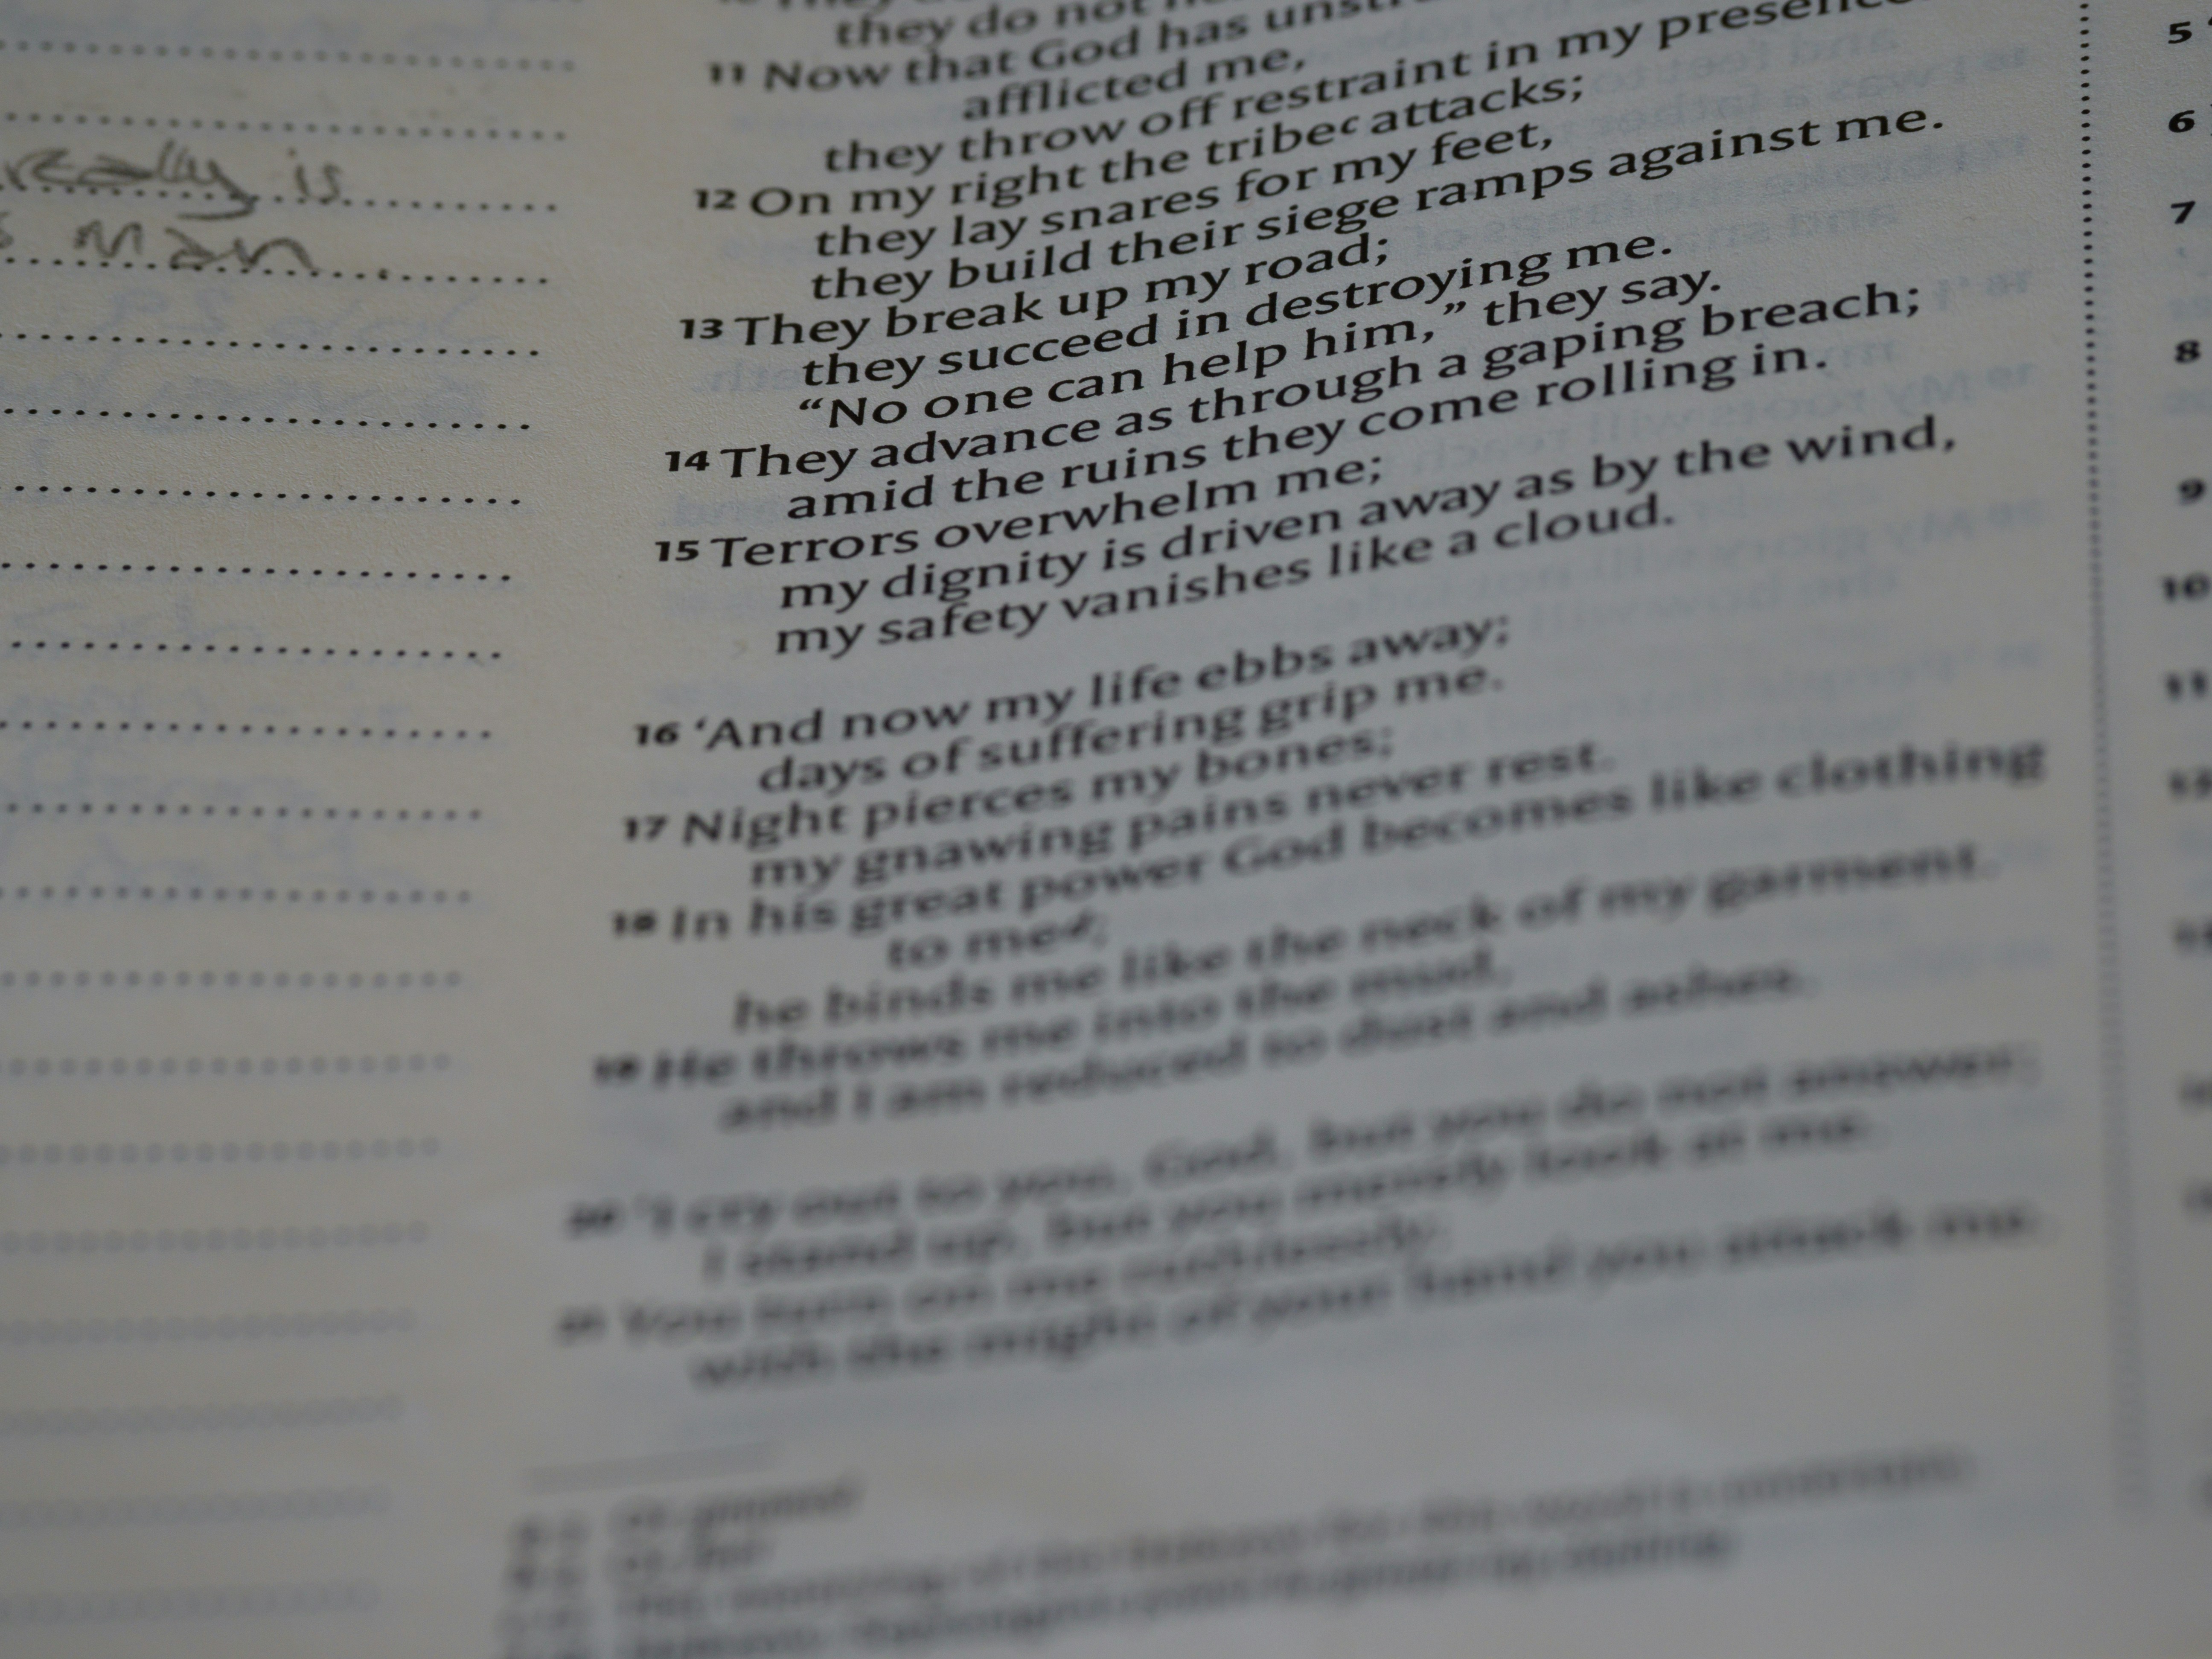 really is
man.
they do not
11 Now that God has
afflicted me,
they throw off restraint in my presence.
12 On my right the tribeᶜ attacks;
they lay snares for my feet,
they build their siege ramps against me.
13 They break up my road;
they succeed in destroying me.
“No one can help him,” they say.
14 They advance as through a gaping breach;
amid the ruins they come rolling in.
15 Terrors overwhelm me;
my dignity is driven away as by the wind,
my safety vanishes like a cloud.
16 ‘And now my life ebbs away;
days of suffering grip me.
17 Night pierces my bones;
my gnawing pains never rest.
18 In his great power God becomes like clothing
to meᵈ;
he binds me like the neck of my garment.
19 He throws me into the mud,
and I am reduced to dust and ashes.
20 ‘I cry out to you, God, but you do not answer;
I stand up, but you merely look at me.
21 You turn on me ruthlessly;
with the might of your hand you attack me.
5
6
7
8
9
10
11
12